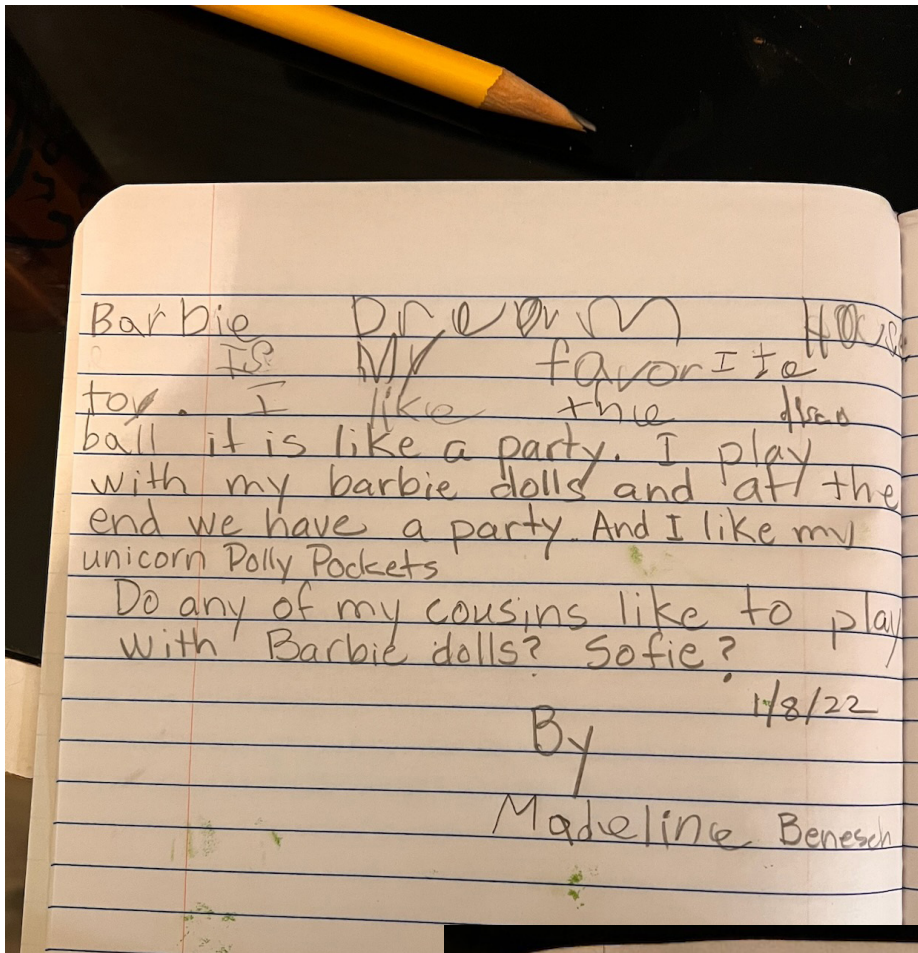 Barbie Dream House
Is My favorIte
toy. I like the disco
ball it is like a party. I play
with my barbie dolls and at the
end we have a party. And I like my
unicorn Polly Pockets
Do any of my cousins like to play
with Barbie dolls? Sofie?
1/8/22
By
Madeline Benesch